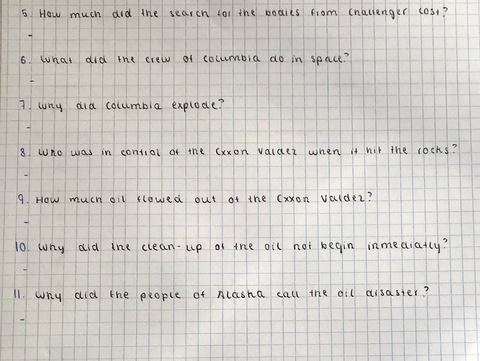 5. How much did the search for the bodies from Challenger cost?
-
6. What did the crew of Columbia do in space?
-
7. Why did Columbia explode?
-
8. Who was in control of the Exxon Valdez when it hit the rocks?
-
9. How much oil flowed out of the Exxon Valdez?
-
10. Why did the clean-up of the oil not begin inmediatly?
-
11. Why did the people of Alasha call the oil disaster?
-